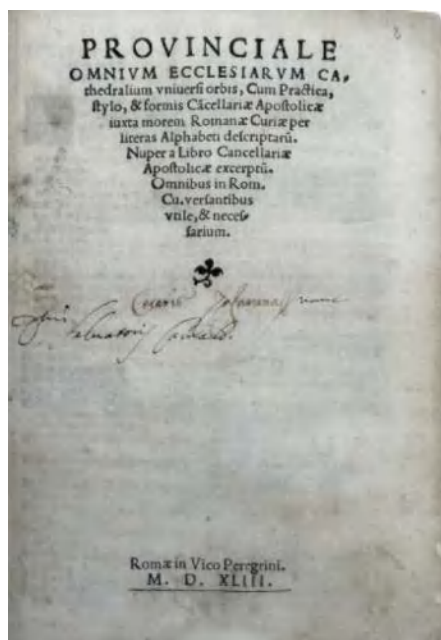 8
PROVINCIALE
OMNIVM ECCLESIARVM CA,
thedralium vniuersi orbis, Cum Practica,
stylo, & formis Cãcellariæ Apostolicæ
iuxta morem Romanæ Curiæ per
literas Alphabeti descriptarũ.
Nuper a Libro Cancellariæ
Apostolicæ excerptũ.
Omnibus in Rom.
Cu. versantibus
vtile, & neces-
sarium.
Romæ in Vico Peregrini.
M. D. XLIII.